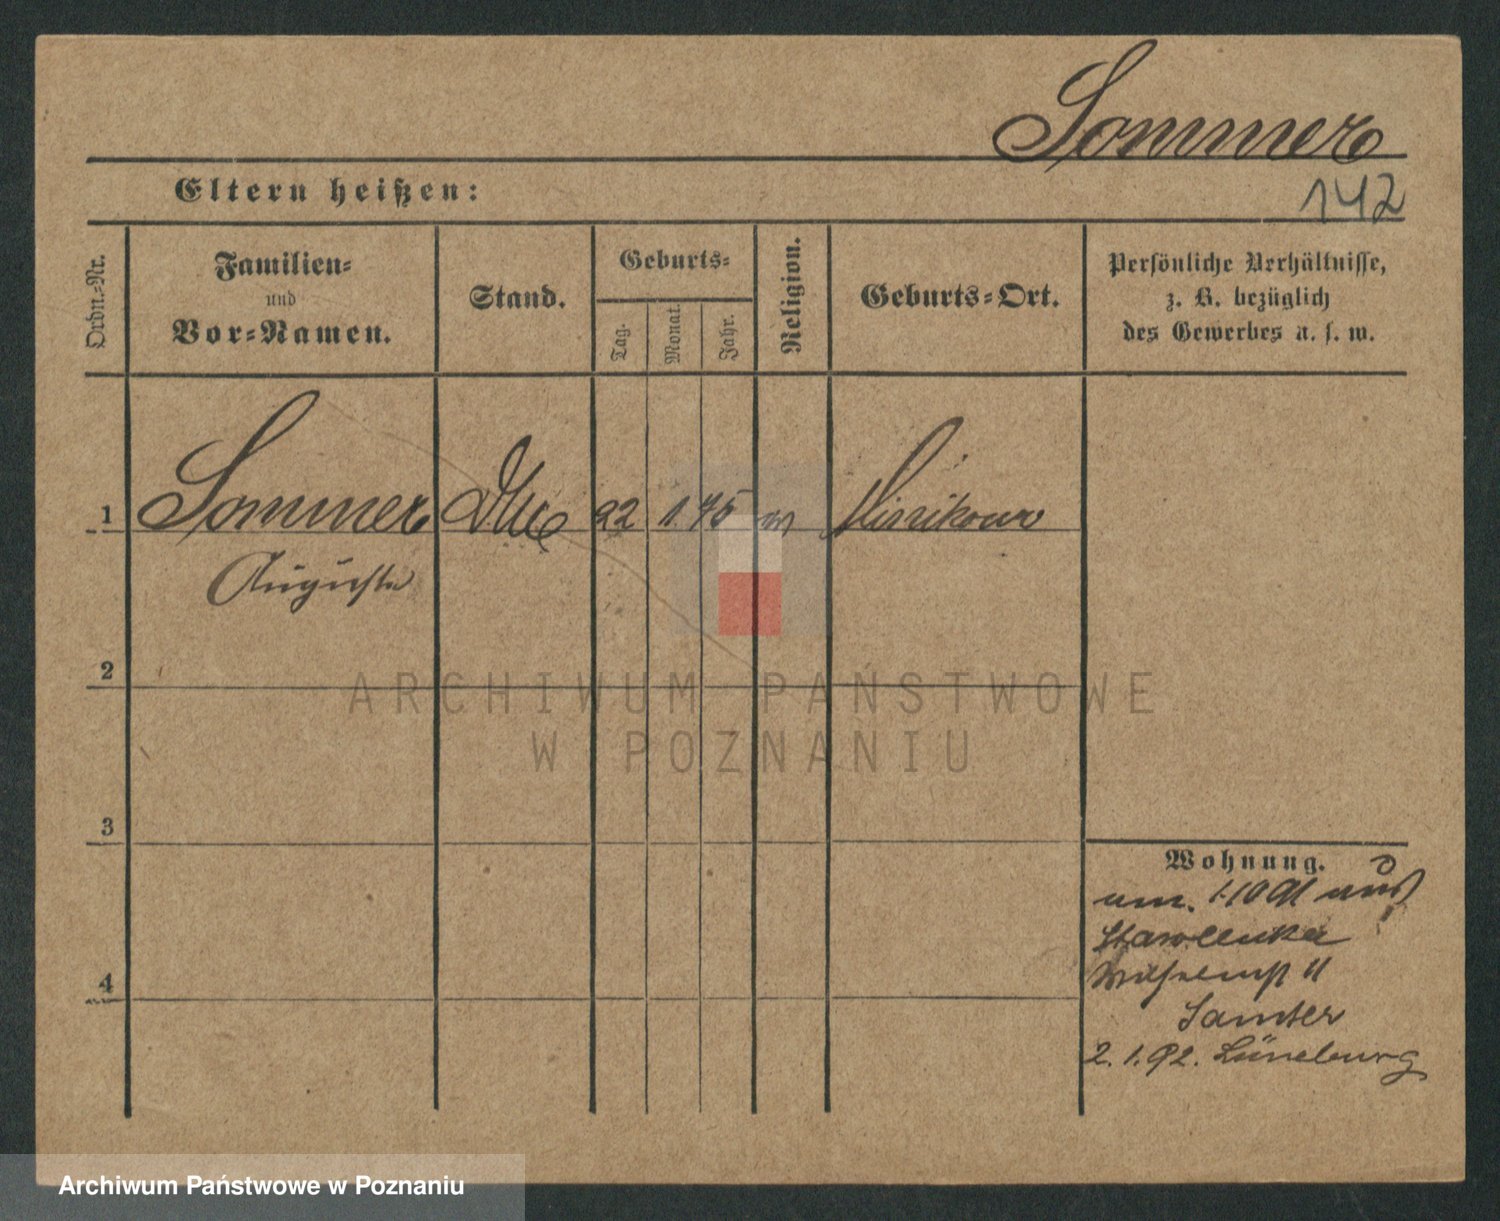 Sommer
Eltern heißen:
142
Ordn.-Nr.
Familien-
und
Vor-Namen.
Stand.
Geburts-
Tag.
Monat.
Jahr.
Religion.
Geburts-Ort.
Persönliche Verhältnisse,
z. B. bezüglich
des Gewerbes u. s. w.
1
Sommer
22
1
75
Auguste
2
ARCHIWUM PAŃSTWOWE
W POZNANIU
3
Wohnung.
1 10 91 aus
4
Samter
2. 1. 92. Lüneburg
Archiwum Państwowe w Poznaniu